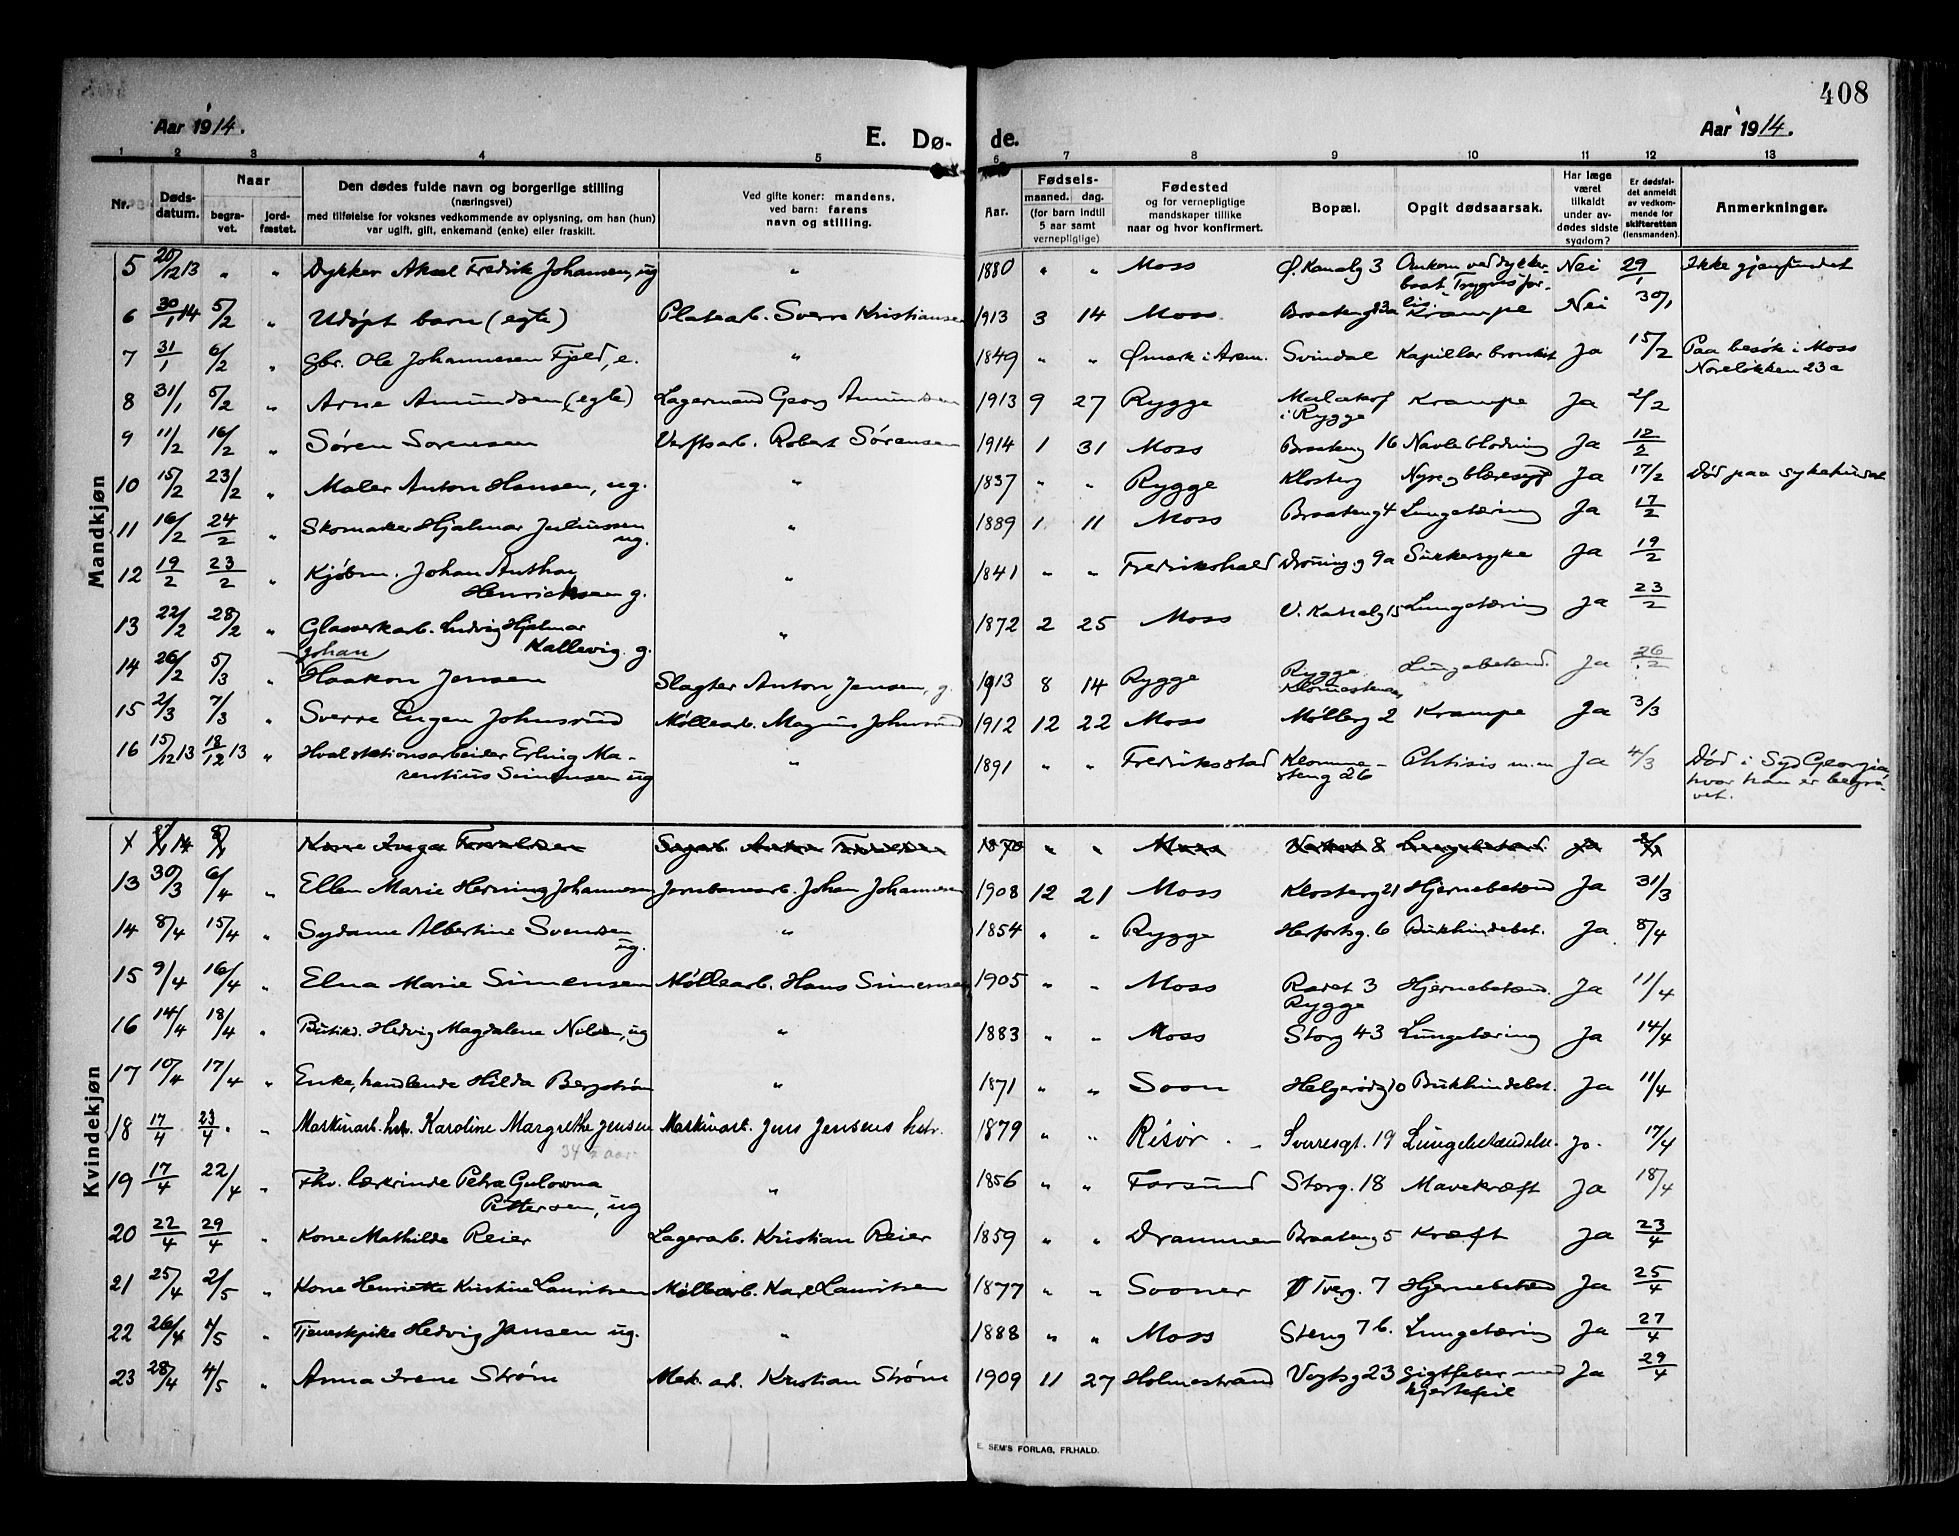 408
Aar 1914.
E. Dø- de.
Aar 1914.
1 2 3 4 5 6 7 8 9 10 11 12 13
Nr.
Døds-
datum.
Naar
begra-
vet.
jord-
fæstet.
Den dødes fulde navn og borgerlige stilling
(næringsvei)
med tilføielse for voksnes vedkommende av oplysning, om han (hun)
var ugift, gift, enkemand (enke) eller fraskilt.
Ved gifte koner: mandens,
ved barn: farens
navn og stilling.
Aar.
Fødsels-
maaned. dag.
(for barn indtil
5 aar samt
vernepliglige)
Fødested
og for vernepligtige
mandskaper tillike
naar og hvor konfirmert.
Bopæl.
Opgit dødsaarsak.
Har læge
været
tilkaldt
under av-
dødes sidste
sygdom?
Er dødsfal-
det anmeldt
av vedkom-
mende for
skifteretten
(lensmanden).
Anmerkninger.
Mandkjøn
5 20/12 13 " " Dykker Aksel Fredrik Johansen, ug " 1880 " " Moss Ø. Kanalg 3 Omkom ved dykker- Nei 29/1 Ikke gjenfundet
baat Trygves for-
lis.
6 30/1 14 5/2 " Udøpt barn (egte) Platearb. Sverre Kristiansen 1913 3 14 Moss Braateng 13a Krampe Nei 30/1
7 31/1 6/2 " Gbr. Ole Johannesen Fjeld, e. " 1849 " " Ømark i Arem. Svindal Kapillær bronkit Ja 15/2 Paa besøk i Moss
Noreløkken 23a
8 31/1 5/2 " Arne Amundsen (egte) Lagermand Georg Amundsen 1913 9 27 Rygge Malakof Krampe Ja 2/2
i Rygge
9 11/2 16/2 " Søren Sorensen Verftsarb. Robert Sørensen 1914 1 31 Moss Braateng 16 Navleblødning Ja 12/2
10 15/2 23/2 " Maler Anton Hansen, ug. " 1837 " " Rygge Klosterg Nyre og blæresyg Ja 17/2 Død paa sykehuset
11 16/2 24/2 " Skomaker Hjalmar Juliussen " 1889 1 11 Moss Braateng 4 Lungetæring Ja 17/2
ug.
12 19/2 23/2 " Kjøbm. Johan Anthon " 1841 " " Fredrikshald Droning.g 9a Sukkersyke Ja 19/2
Henricksen g.
13 22/2 28/2 " Glasverkarb. Ludvig Hjalmar " 1872 2 25 Moss V. Kanalg 15 Lungetæring Ja 23/2
Kallevig. g.
Johan
14 26/2 5/3 " Haakon Jensen Slagter Anton Jensen, g. 1913 8 14 Rygge Rygge Lungebetænd. Ja 26/2
15 2/3 7/3 " Sverre Eugen Johnsrud Møllearb. Magnus Johnsrud 1912 12 22 Moss Mølleg 2 Krampe Ja 3/3
16 15/12 13 18/12 13 " Hvalstationsarbeider Erling Ma- " 1891 " " Fredriksstad Klomme- Phtisis m.m Ja 4/3 Død i Syd Georgia,
rentius Simensen ug steng 26 hvor han er begra-
vet.
Kvindekjøn
Kone Inga
1870 " " Moss 8 Lungebetænd. Ja
13 30/3 6/4 " Ellen Marie Herning Johannesen Jernbanearb. Johan Johannesen 1908 12 21 Moss Klosterg 21 Hjernebetænd Ja 31/3
14 8/4 15/4 " Sydame Albertine Svendsen " 1854 " " Rygge Herfortsg. 6 Bukhindebet. Ja 8/4
ug.
15 9/4 16/4 " Elna Marie Simensen Møllearb. Hans Simensen 1905 " " Moss Raret 3 Hjernebetænd. Ja 11/4
Rygge
16 14/4 18/4 " Butikd. Hedvig Magdalene Nilsen, ug " 1883 " " Moss Storg 43 Lungetæring Ja 14/4
17 10/4 17/4 " Enke, handlende Hilda Bergstrøm " 1871 " " Soon Helgerødg 10 Bukhindebet. Ja 11/4
18 17/4 23/4 " Maskinarb. hstr. Karoline Margrethe Jensen Maskinarb. Jens Jensens hstr. 1879 " " Risør Sverresgt. 19 Lungebetændelse. Ja. 17/4
34 1/2 aar
19 17/4 22/4 " Fhv. lærerinde Petra Gulovna " 1856 " " Farsund Storg. 18 Mavekræft Ja 18/4
Pettersen, ug
20 22/4 29/4 " Kone Mathilde Reier Lagerarb. Kristian Reier 1859 " " Drammen Braateng 5 Kræft Ja 23/4
21 25/4 2/5 " Kone Henriette Kristine Lauritsen Møllearb. Karl Lauritsen 1877 " " Sooner Ø Tverg. 7 Hjernebetænd Ja 25/4
22 26/4 4/5 " Tjenestepike Hedvig Jansen ug. " 1888 " " Moss Steng 7 b. Lungetæring Ja 27/4
23 28/4 4/5 " Anna Irene Strøm Mek. arb. Kristian Strøm 1909 11 27 Holmestrand Vogtsg 23 Gigtfeber med Ja 29/4
hjertefeil
E. SEM'S FORLAG, FR.HALD.